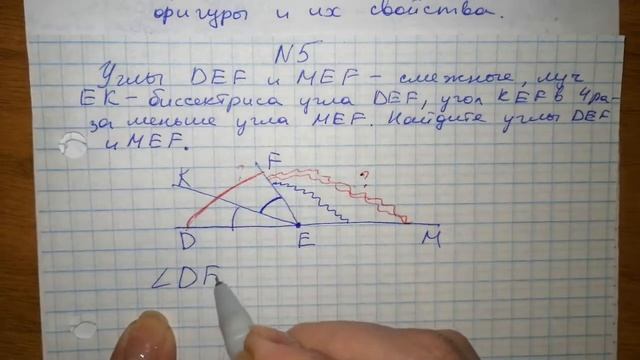 фигуры и их свойства.
N5
Углы DEF и MEF – смежные, луч
EK – биссектриса угла DEF, угол KEF в 4 ра-
за меньше угла MEF. Найдите углы DEF
и MEF.
F
?
?
K
D
E
M
∠DF